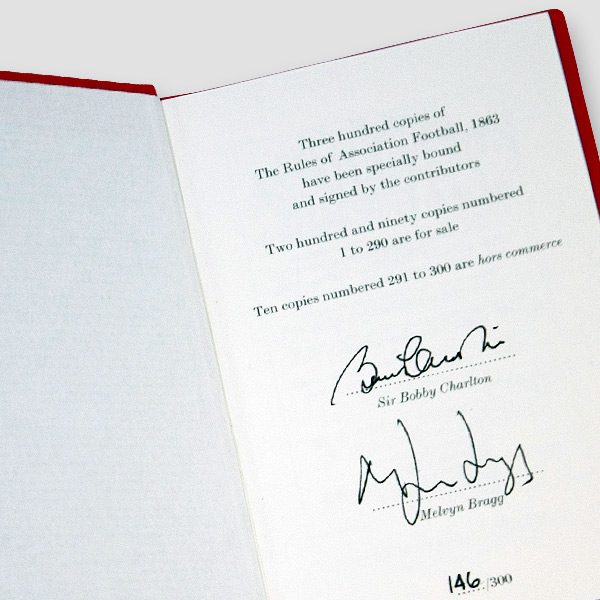 Three hundred copies of
The Rules of Association Football, 1863
have been specially bound
and signed by the contributors
Two hundred and ninety copies numbered
1 to 290 are for sale
Ten copies numbered 291 to 300 are hors commerce
Sir Bobby Charlton
Melvyn Bragg
146/300